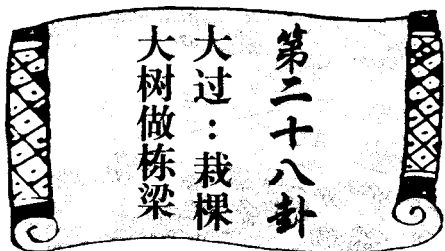 第二十八卦
大过：栽棵
大树做栋梁